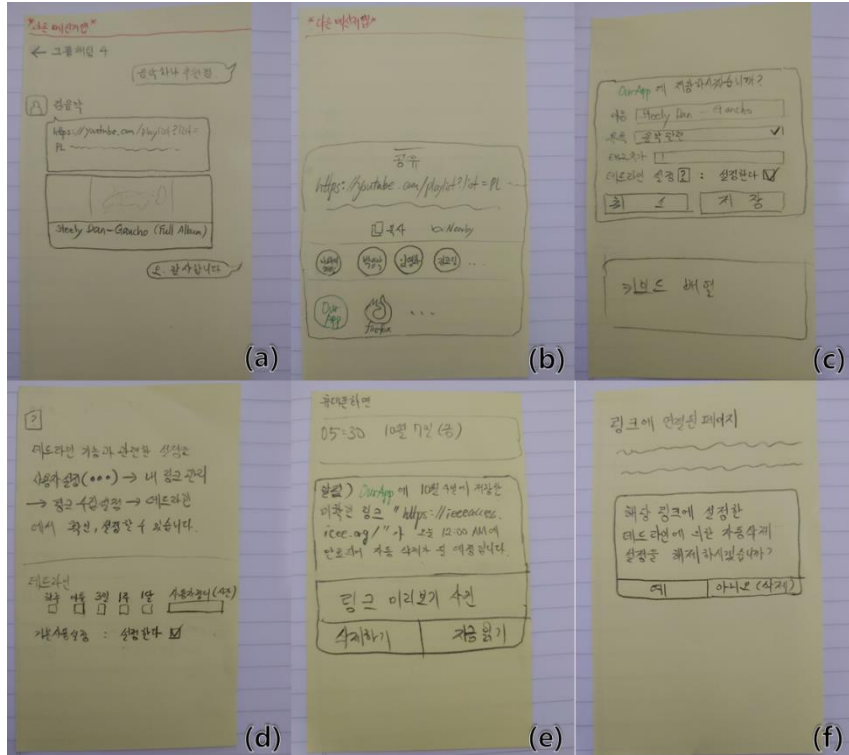 *다른 메신저앱*
← 그룹채팅 4
음악하나 추천점.
김음악
https://youtube.com/playlist?list=
PL
Steely Dan-Gaucho (Full Album)
오. 감사합니다
(a)
*다른 메신저앱*
공유
https://youtube.com/playlist?list=PL
복사 Nearby
Our
App
firefox
...
(b)
OurApp에 저장하시겠습니까?
이름 Steely Dan - Gaucho
목록 음악관련
태그추가
데드라인 설정 ? : 설정한다
취소 저장
키보드 배열
(c)
?
데드라인 기능과 관련한 설정은
사용자설정(•••) → 내 링크 관리
→ 링크 수집설정 → 데드라인
에서 확인, 설정할 수 있습니다.
데드라인
하루 이틀 3일 1주 1달 사용자정의(시간)
기본사용설정 : 설정한다
(d)
휴대폰화면
05:30 10월 7일 (금)
알림) OurApp에 10월 4일에 저장한
미확인 링크 "https://ieeeaccess.
ieee.org/"가 오늘 12:00 AM에
만료되어 자동 삭제가 될 예정입니다.
링크 미리보기 사진
삭제하기 지금 읽기
(e)
링크에 연결된 페이지
해당 링크에 설정한
데드라인에 의한 자동삭제
설정을 해제하시겠습니까?
예 아니오(삭제)
(f)